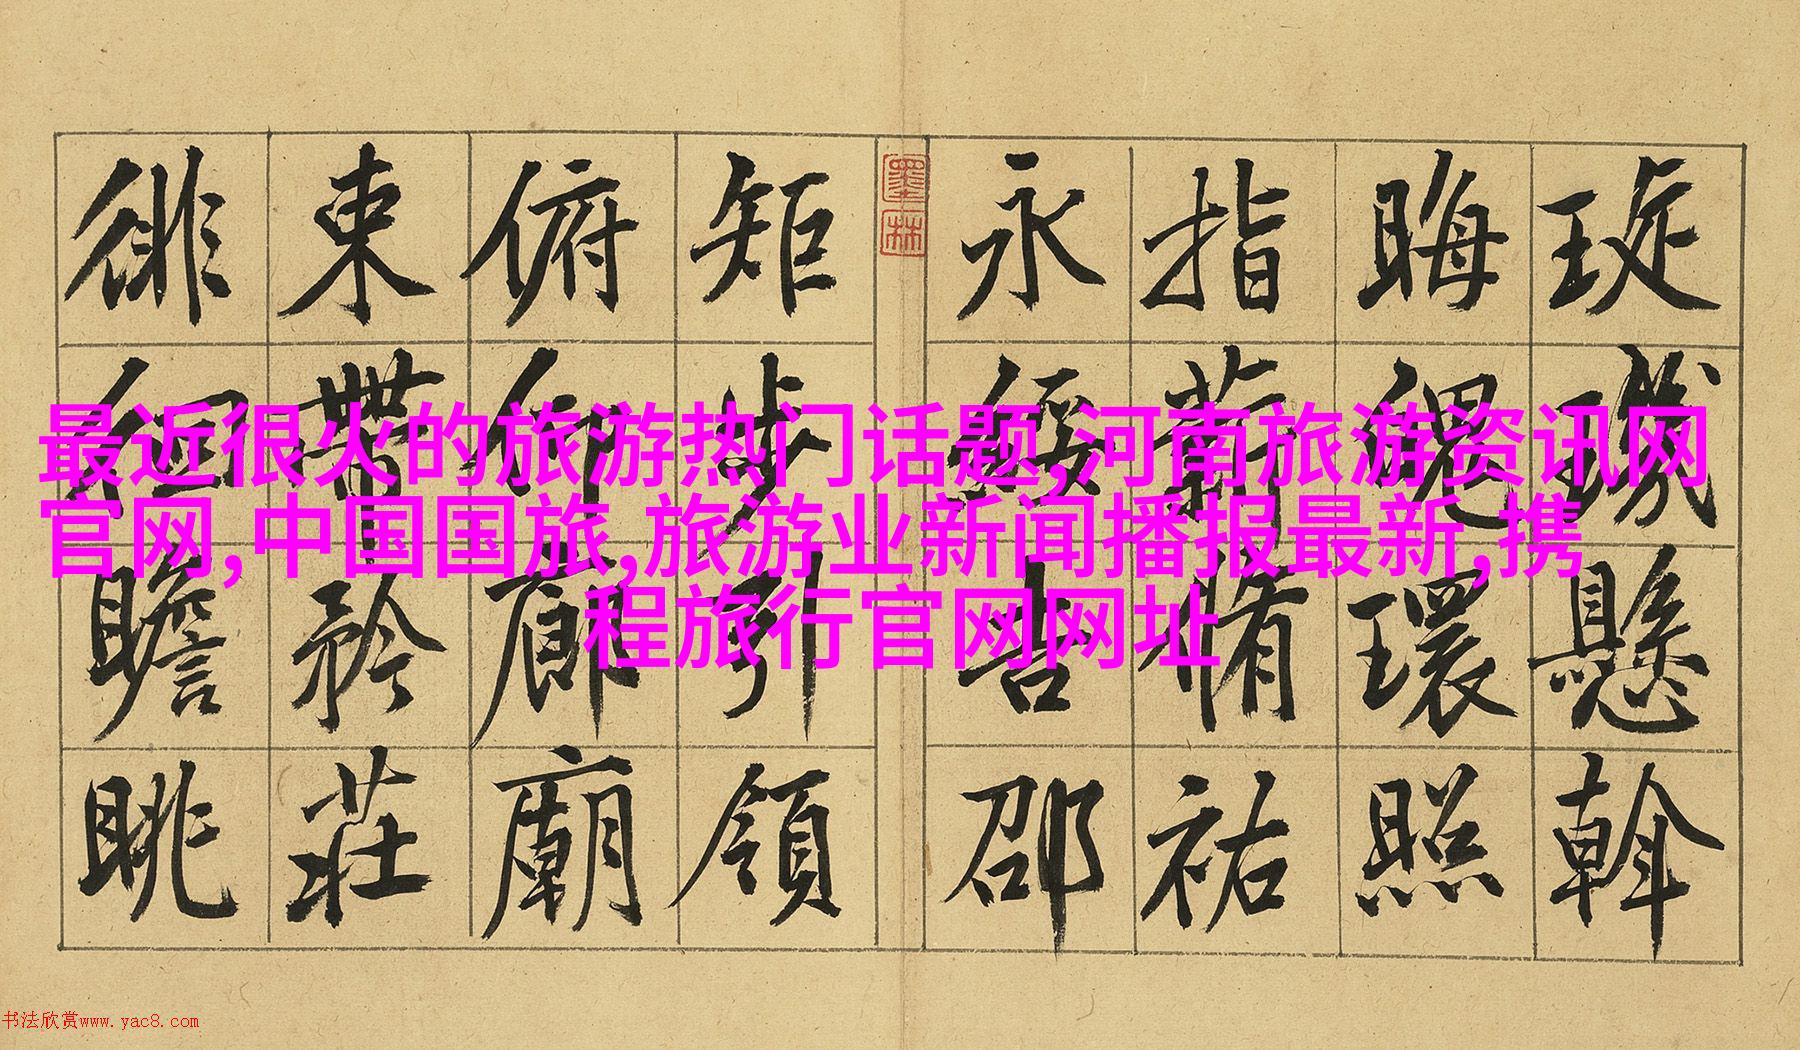 璇璣懸斡
晦魄環照
指薪脩祐
永綏吉邵
墨林
矩步引領
俯仰廊廟
束帶矜莊
徘徊瞻眺
最近很火的旅游热门话题,河南旅游资讯网
官网,中国国旅,旅游业新闻播报最新,携
程旅行官网网址
书法欣赏www.yac8.com